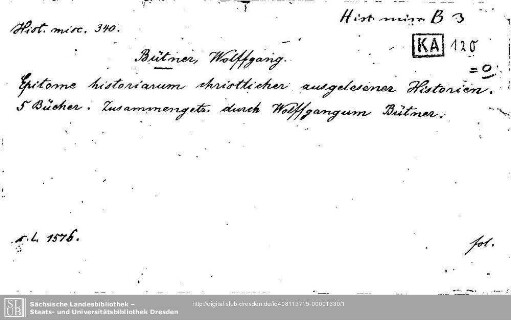 Hist. misc. 340.
Hist. misc. B 3
KA 120
= 0
Bütner, Wolffgang.
Epitome historiarum christlicher ausgelesener Historien.
5 Bücher. Zusammenget. durch Wolffgangum Bütner.
s. l. 1576.
fol.
SLUB
Sächsische Landesbibliothek –
Staats- und Universitätsbibliothek Dresden